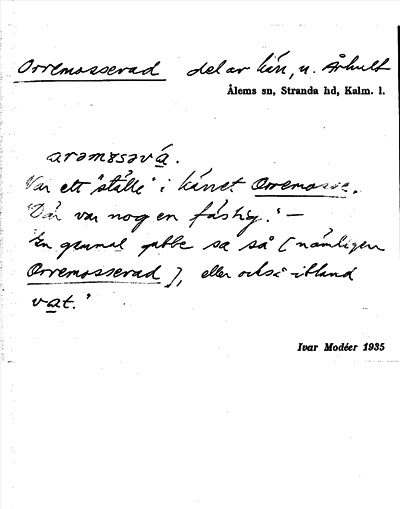 Orremosserad del av kärr, u. Århult
Ålems sn, Stranda hd, Kalm. l.
arəmɔsəvá.
Var ett "ställe" i kärret Orremosse.
"Där var nog en fästig." —
En gammal gubbe sa så [nämligen
Orremosserad], eller också ibland
vat."
Ivar Modéer 1935